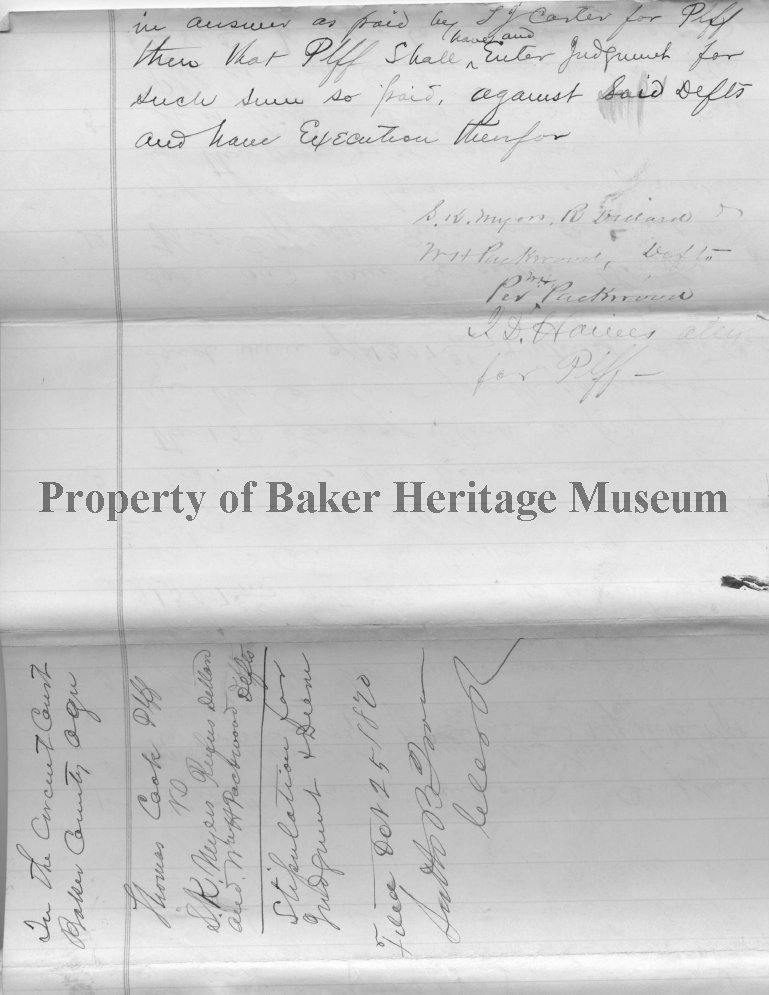 in answer as paid by T J Carter for Plff
then that Plff Shall have and Enter Judgment for
such sum so paid, against Said Defts
and have Execution therefor
S. K. Myers, R Dillard &
W H Packwood, Defts
Per Wm Packwood
I. D. Haines atty
for Plff —
Property of Baker Heritage Museum
In the Circuit Court
Baker County Ogn
Thomas Cook Plff
vs
S. K. Myers Rufus Dillard
and Wm H Packwood Defts
Stipulation for
Judgment & Decree
Filed Oct 25 1870
Clerk